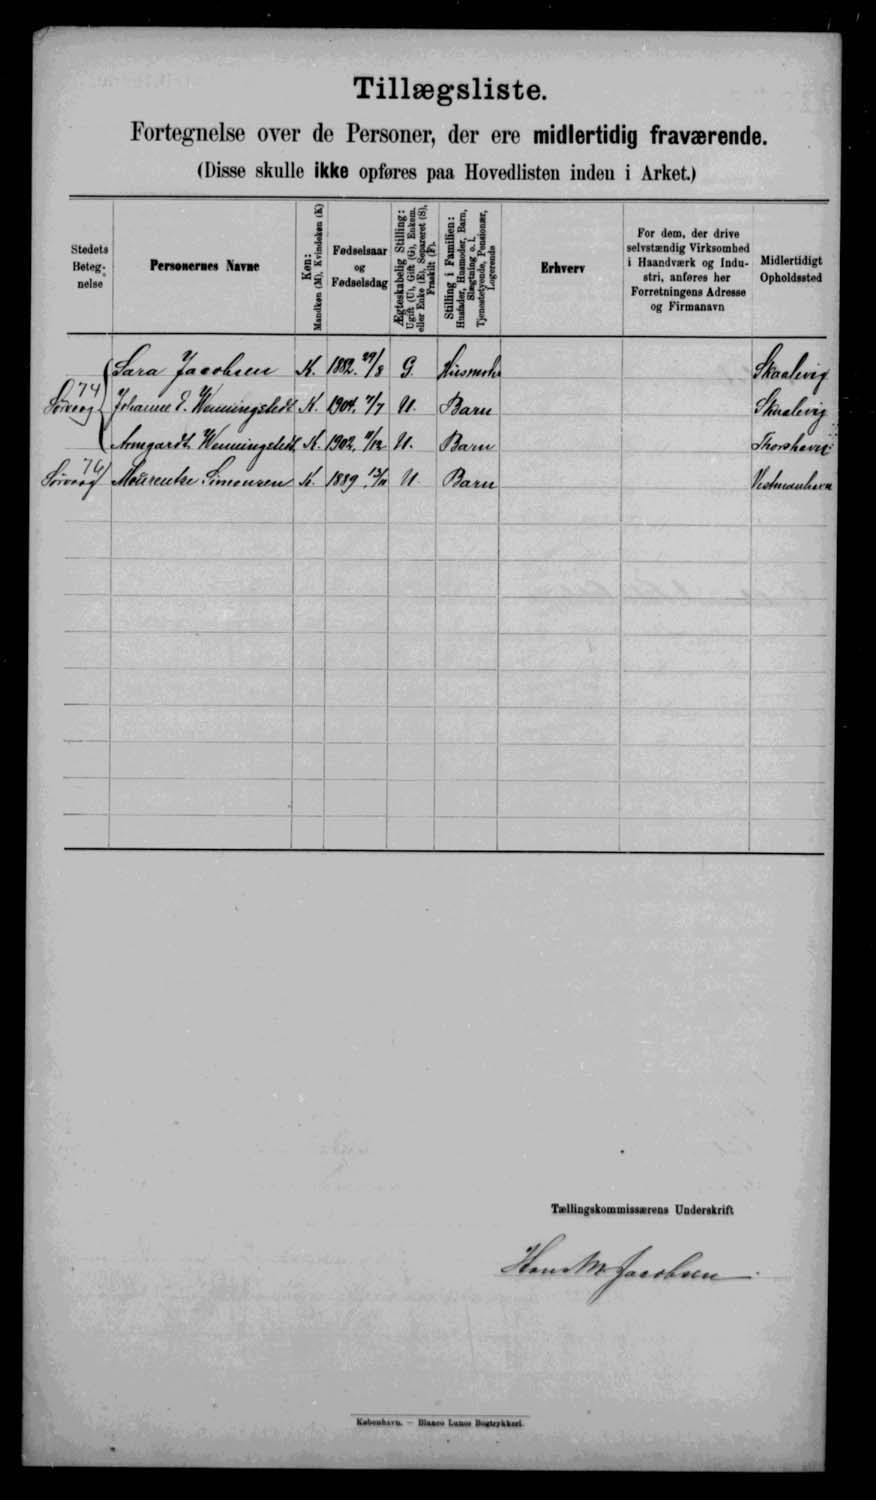 Tillægsliste.
Fortegnelse over de Personer, der ere midlertidig fraværende.
(Disse skulle ikke opføres paa Hovedlisten inden i Arket.)
Stedets Beteg-nelse
Personernes Navne
Køn: Mandkøn (M), Kvindekøn (K)
Fødselsaar og Fødselsdag
Ægteskabelig Stilling: Ugift (U), Gift (G), Enkem. eller Enke (E), Separeret (S), Fraskilt (F).
Stilling i Familien: Husfader, Husmoder, Barn, Slægtning o. l. Tjenestetyende, Pensionær, Logerende
Erhverv
For dem, der drive selvstændig Virksomhed i Haandværk og Indu-stri, anføres her Forretningens Adresse og Firmanavn
Midlertidigt Opholdssted
Sara Jacobsen K. 1882. 29/8 G. Husmoder Skaalevig
Sørvaag 74 Johanne E. Wenningstedt K. 1904. 7/7 U. Barn Skaalevig
Armgardt Wenningstedt K. 1902. /12 U. Barn Thorshavn
Sørvaag 76 Simonsen K. 1889 13/11 U. Barn Vestmanhavn
Tællingskommissærens Underskrift
Hans M Jacobsen
København. — Bianco Lunos Bogtrykkeri.